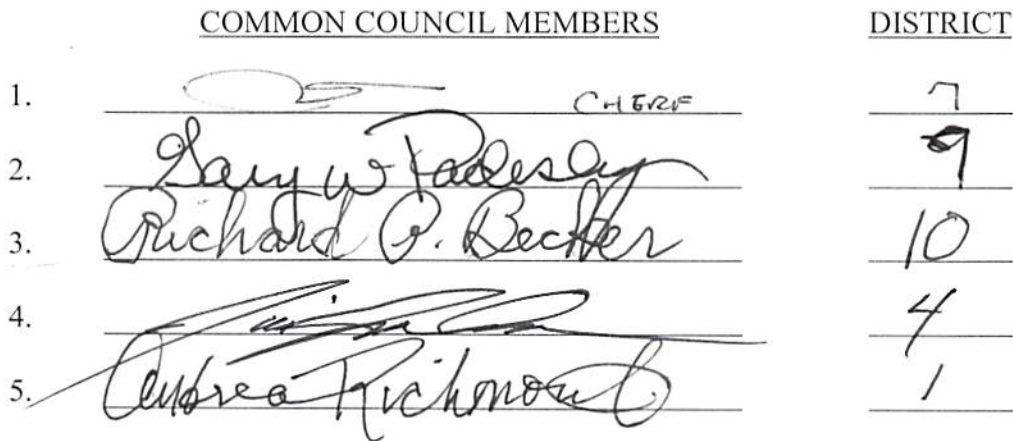 COMMON COUNCIL MEMBERS DISTRICT
1. CHERF 7
2. Gary W Padesky 9
3. Richard P. Becker 10
4. 4
5. Andrea Richmond 1